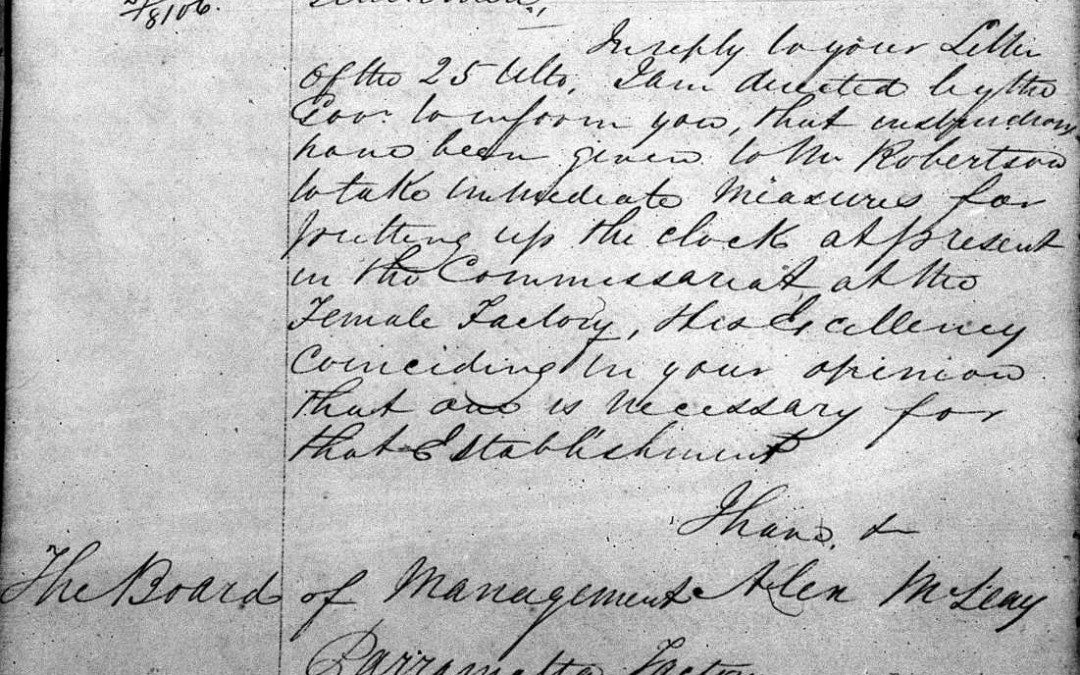 8106.
Gentlemen,
In reply to your Letter
Of the 25 Ulto, I am directed by the
Govr to inform you, that instructions
have been given to Mr Robertson
to take immediate Measures for
putting up the clock at present
in the Commissariat at the
Female Factory, His Excellency
Coinciding in your opinion
that one is necessary for
that Establishment
I have &
The Board of Management Alex McLeay
Parramatta Factory